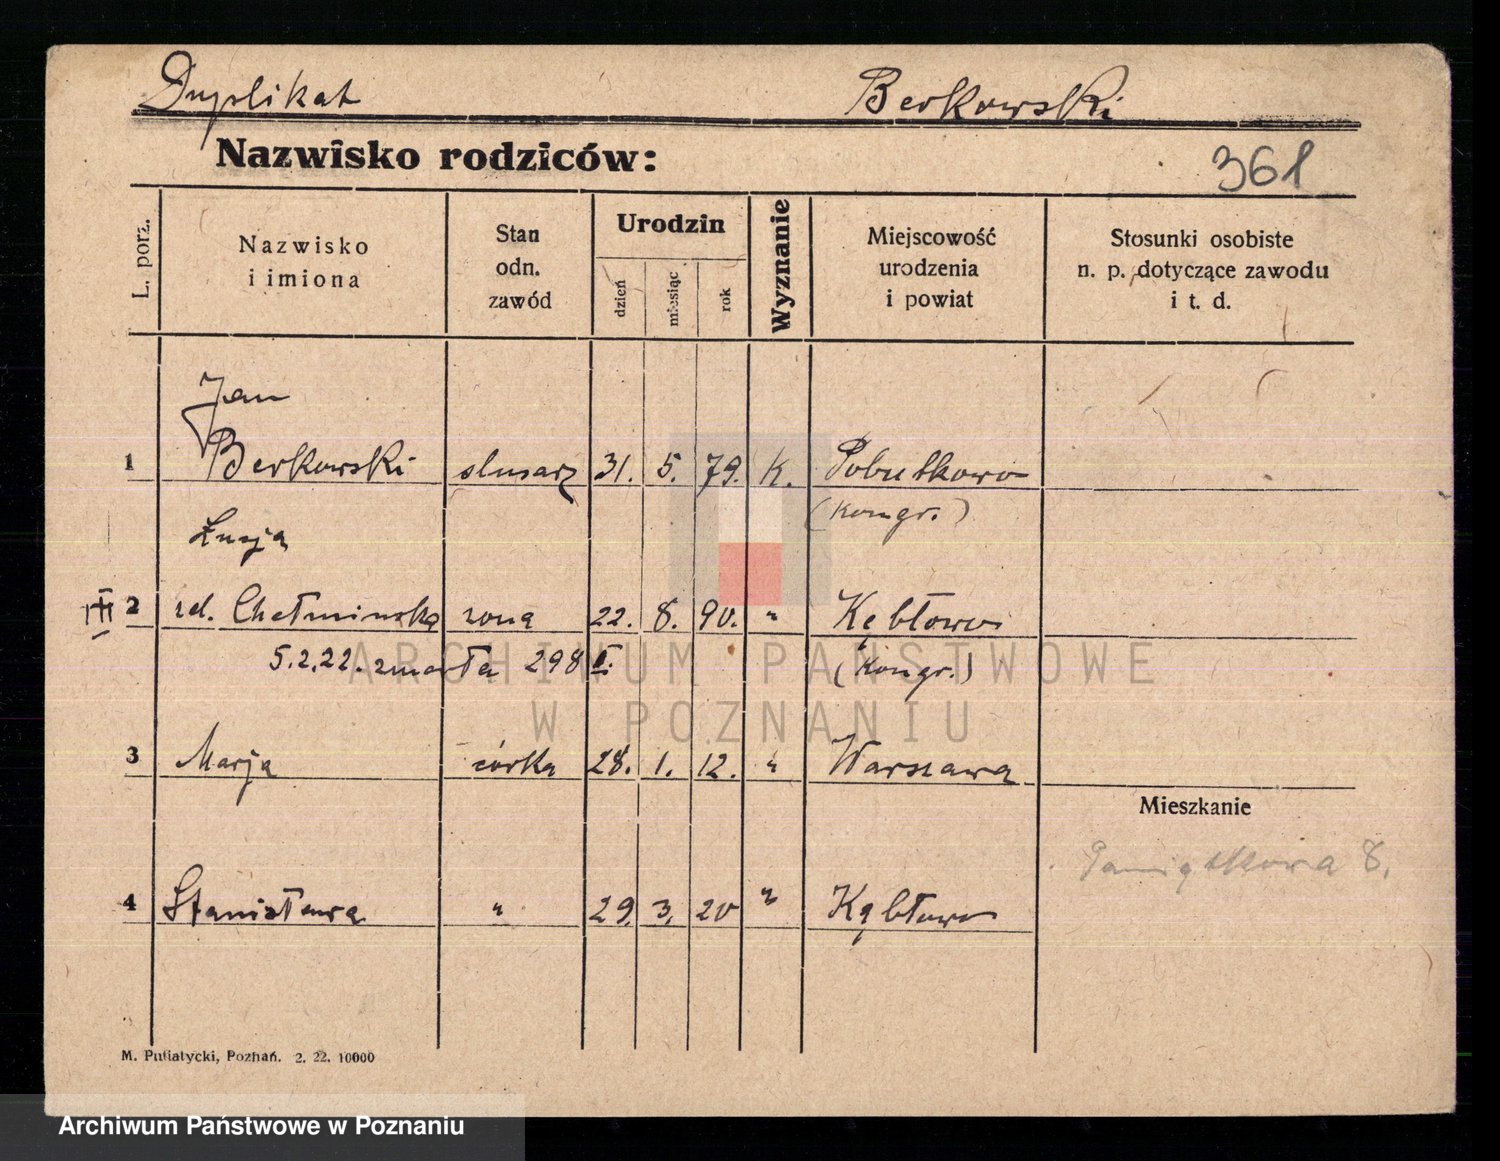 Duplikat Berkowski
Nazwisko rodziców:
361
L. porz.
Nazwisko
i imiona
Stan
odn.
zawód
Urodzin
dzień
miesiąc
rok
Wyznanie
Miejscowość
urodzenia
i powiat
Stosunki osobiste
n. p. dotyczące zawodu
i t. d.
Jan
1 Berkowski slusarz 31. 5. 79. K. Pobutkowo
(Kongr.)
Łucja
2 zd. Chełminska zona 22. 8. 90. " Kębłowo
5.2.22. zmarła 298 (Kongr.)
3 Marja córka 28. 1. 12. " Warszawa
Mieszkanie
Pamiątkowa 8.
4 Stanisława " 29. 3. 20 " Kębłowo
M. Putiatycki, Poznań. 2. 22. 10000
ARCHIWUM PAŃSTWOWE
W POZNANIU
Archiwum Państwowe w Poznaniu